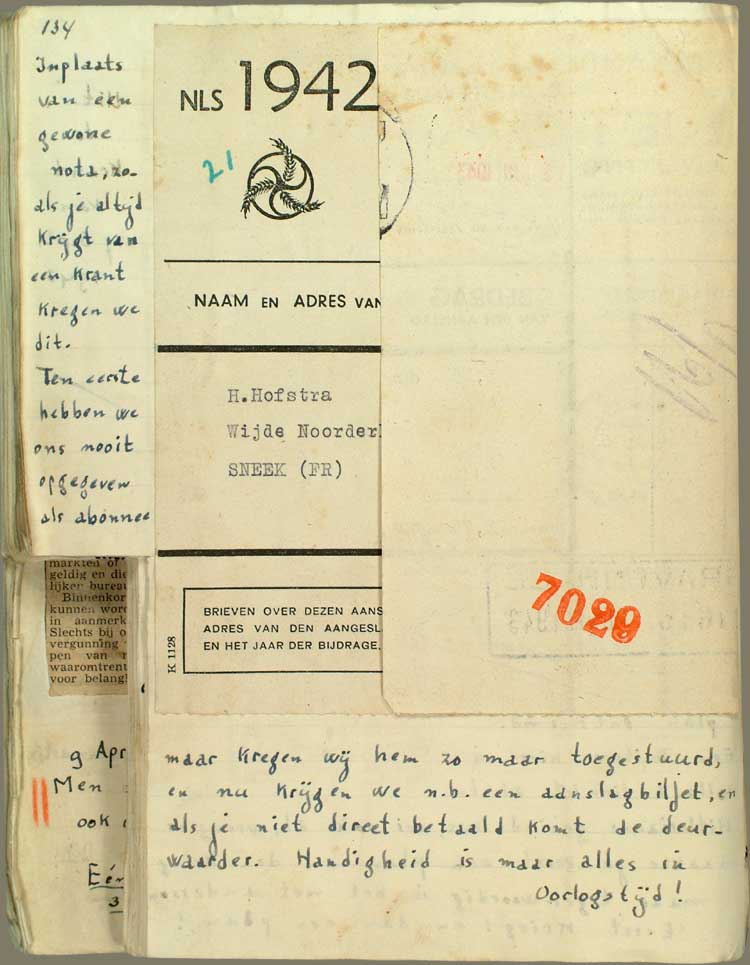 134
Inplaats
van een
gewone
nota, zo-
als je altijd
Krijgt van
een Krant
Kregen we
dit.
Ten eerste
hebben we
ons nooit
opgegeven
als abonnee
NLS 1942
21
NAAM EN ADRES VAN
H.Hofstra
Wijde Noorder
SNEEK (FR)
BRIEVEN OVER DEZEN AANS
ADRES VAN DEN AANGESL
EN HET JAAR DER BIJDRAGE.
K 1128
7029
markten of
geldig en die
lijker bureau
Binnenkor
kunnen word
in aanmerk
Slechts bij o
vergunning
pen van
waaromtrent
voor belang
9 Apr
Men
ook
Eén
3
maar Kregen wij hem zo maar toegestuurd,
en nu Krijgen we n.b. een aanslagbiljet, en
als je niet direct betaald Komt de deur-
waarder. Handigheid is maar alles in
Oorlogstijd!